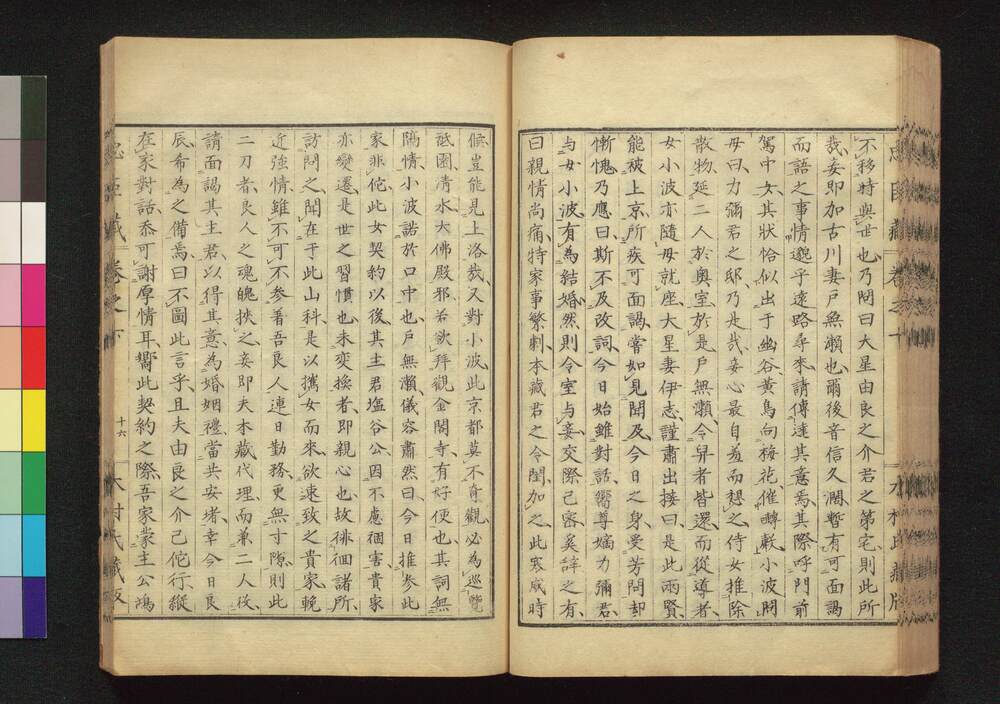 不移時與世也乃問曰大星由良之介君之第宅則此所
哉妾即加古川妻戶無瀬也爾後音信久濶暫有可面謁
而語之事情邈乎遠路尋來請傳達其意焉其際呼門前
駕中女其狀恰似出于幽谷黃鳥向梅花催囀轍小波開
母曰力彌君之邸乃是哉妾心最自羞而想之侍女推除
散物延二人於奧室於是戶無瀬令舁者皆還而從導者
女小波亦隨母就座大星妻伊志謹肅出接曰是此兩賢
能被上京所疾可面謁嘗如見聞及今日之身受芳問却
慚愧乃應曰斯不及改詞今日始雖對話嚮尊嫡力彌君
與女小波有為結婚然則令室與妾交際己審奚辞之有
曰親情尚痛特家事繁劇本藏君之令閨加之此寒威時
候豈能見上洛哉又對小波此京都莫不奇觀必為巡覽
祗園清水大佛殿邪若欲拜觀金閣寺有好便也其詞無
隔情小波諾於口中也戶無瀬儀容肅然曰今日推參此
家非佗此女契約以後其主君塩谷公因不慮禍害貴家
亦變還是世之習慣也未変換者即親心也故徘徊諸所
訪問之聞在于此山科是以攜女而來欲速致之貴家輓
近強情雖不可不参着吾良人連日勤務更無寸隙則此
二刀者良人之魂魄挾之妾即夫本藏代理而兼二人役
請面謁其主君以得其意為婚姻禮當共安堵幸今日良
辰希為之備焉曰不圖此言乎且夫由良之介己佗行縱
在家對話忝可謝厚情耳嚮此契約之際吾家蒙主公鴻
忠臣藏 卷之下
十六
木村氏藏版